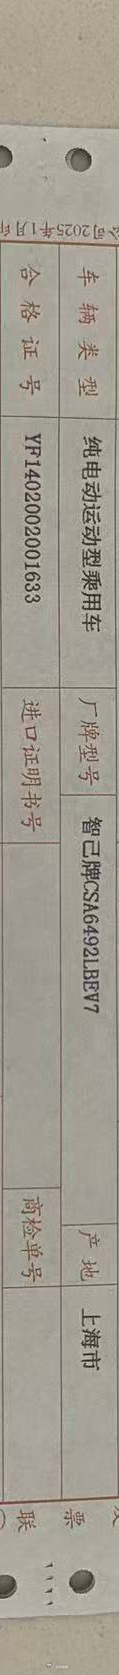 车辆类型 纯电动运动型乘用车 厂牌型号 智己牌CSA6492LBEV7 产地 上海市
合格证号 YF1402002001633 进口证明书号 商检单号
公司2025年1月印
票
联